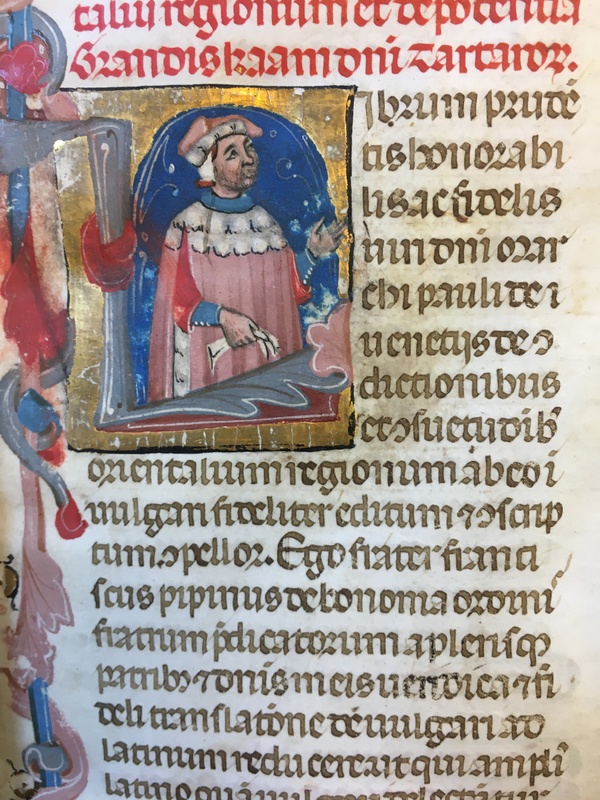 taliu regionum et de potentia
Grandis kaam dni Tartaror.
Librum prudē
tis honorabi
lis ac fidelis
uiri dni
pauli de
uenetijs de ↄ
dictionibus
et ↄsuetudib
orientalium regionum ab eo i
uulgari fideliter editum ⁊ ↄscrip
tum ↄpellor. Ego frater franci
scus pipinus de bononia ordinis
fratrum p̄dicatorum a plerisqꝫ
patribꝫ ⁊ dnis meis ueridica ⁊ fi
deli translatōne de uulgari ad
latinum reducere